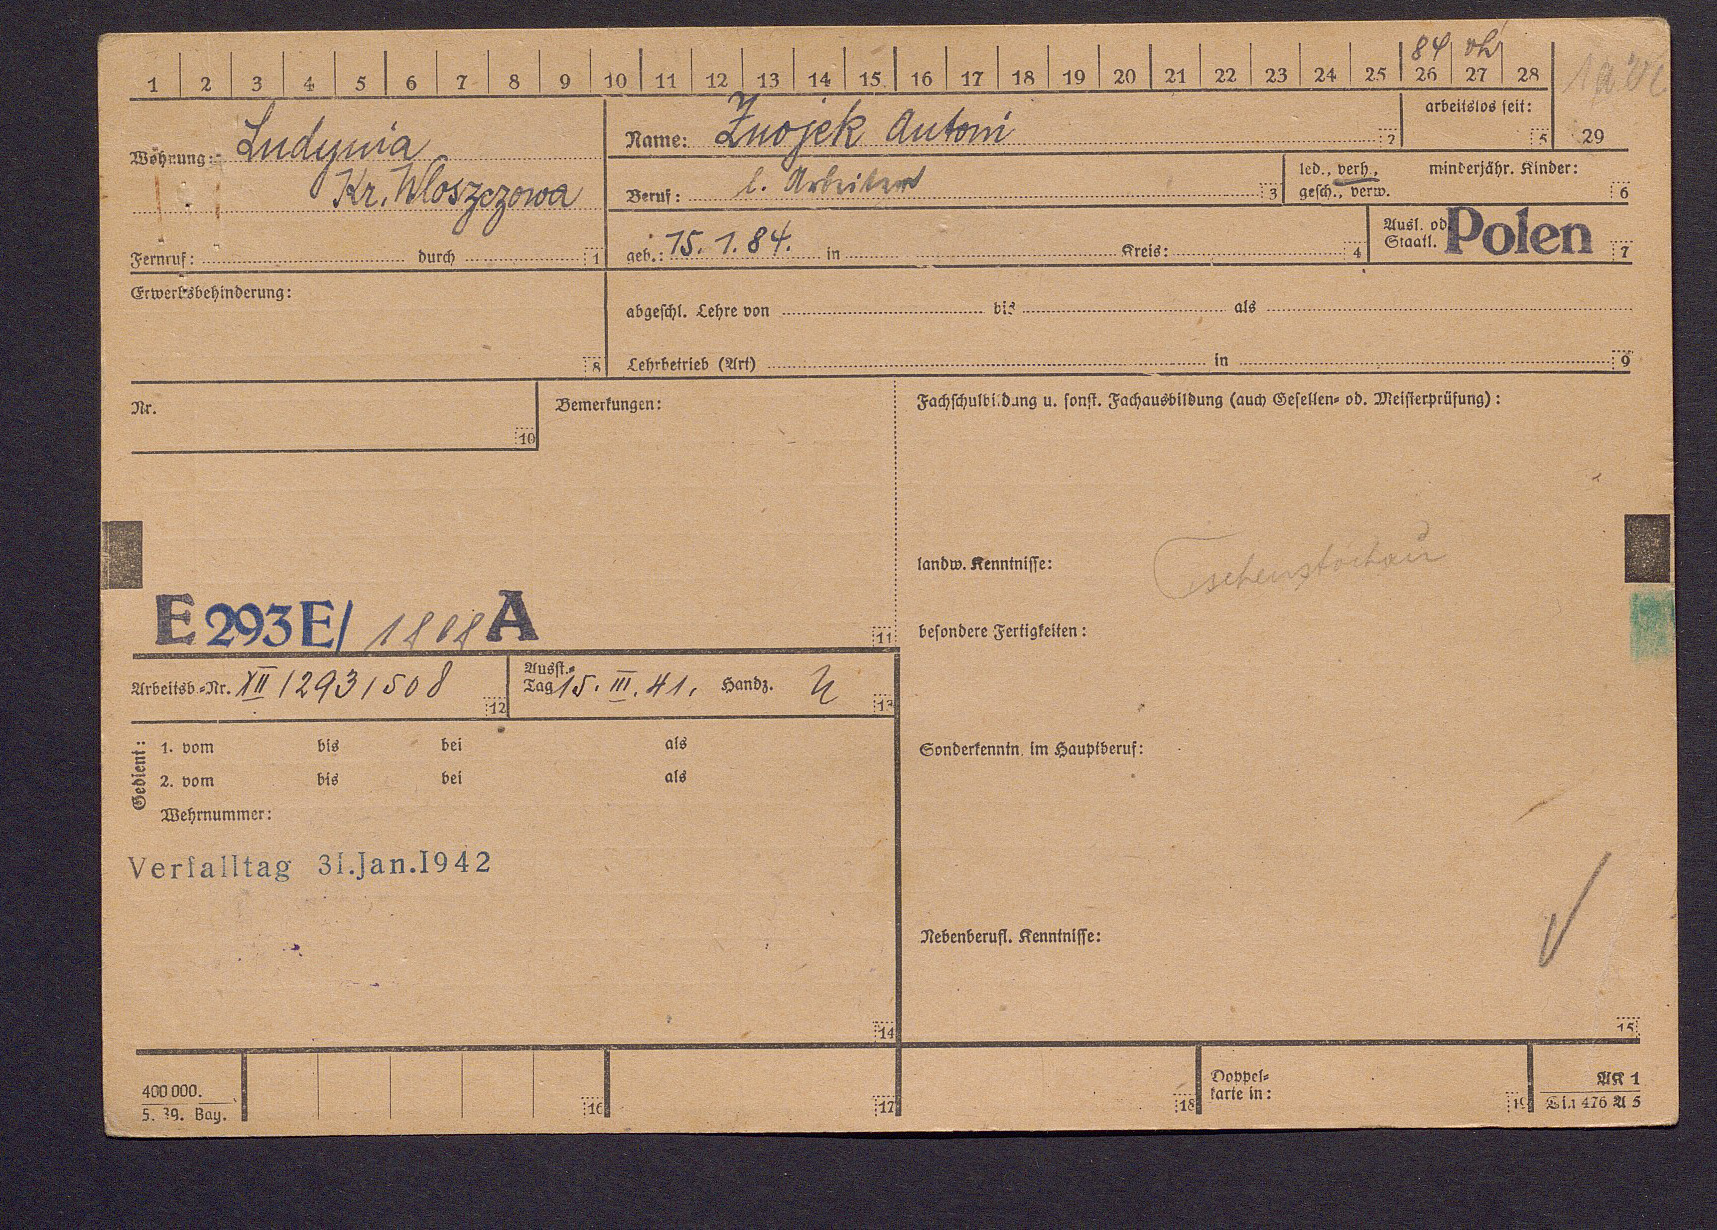 84 vh
1 2 3 4 5 6 7 8 9 10 11 12 13 14 15 16 17 18 19 20 21 22 23 24 25 26 27 28
29
Wohnung: Ludynia
Kr. Wloszczowa
Fernruf: durch 1
Name: Znojek Antoni 2
arbeitslos seit: 5
Beruf: l. Arbeiter 3
led., verh., minderjähr. Kinder:
gesch., verw. 6
geb.: 15. 1. 84. in Kreis: 4
Ausl. od. Polen
Staatl. 7
Erwerbsbehinderung:
8
abgeschl. Lehre von bis als
Lehrbetrieb (Art) in 9
Nr.
10
Bemerkungen:
Fachschulbildung u. sonst. Fachausbildung (auch Gesellen- od. Meisterprüfung):
landw. Kenntnisse: Tschenstochau
E 293 E/ 1808 A
11
besondere Fertigkeiten:
Arbeitsb.-Nr. XII /293/508 12
Ausst.-
Tag 15. III. 41. Handz. 13
Gedient: 1. vom bis bei als
2. vom bis bei als
Wehrnummer:
Sonderkenntn. im Hauptberuf:
Verfalltag 31.Jan.1942
Nebenberufl. Kenntnisse:
14
15
400 000.
5. 39. Bay.
16
17
18
Doppel-
karte in:
19
AK 1
Din 476 A 5